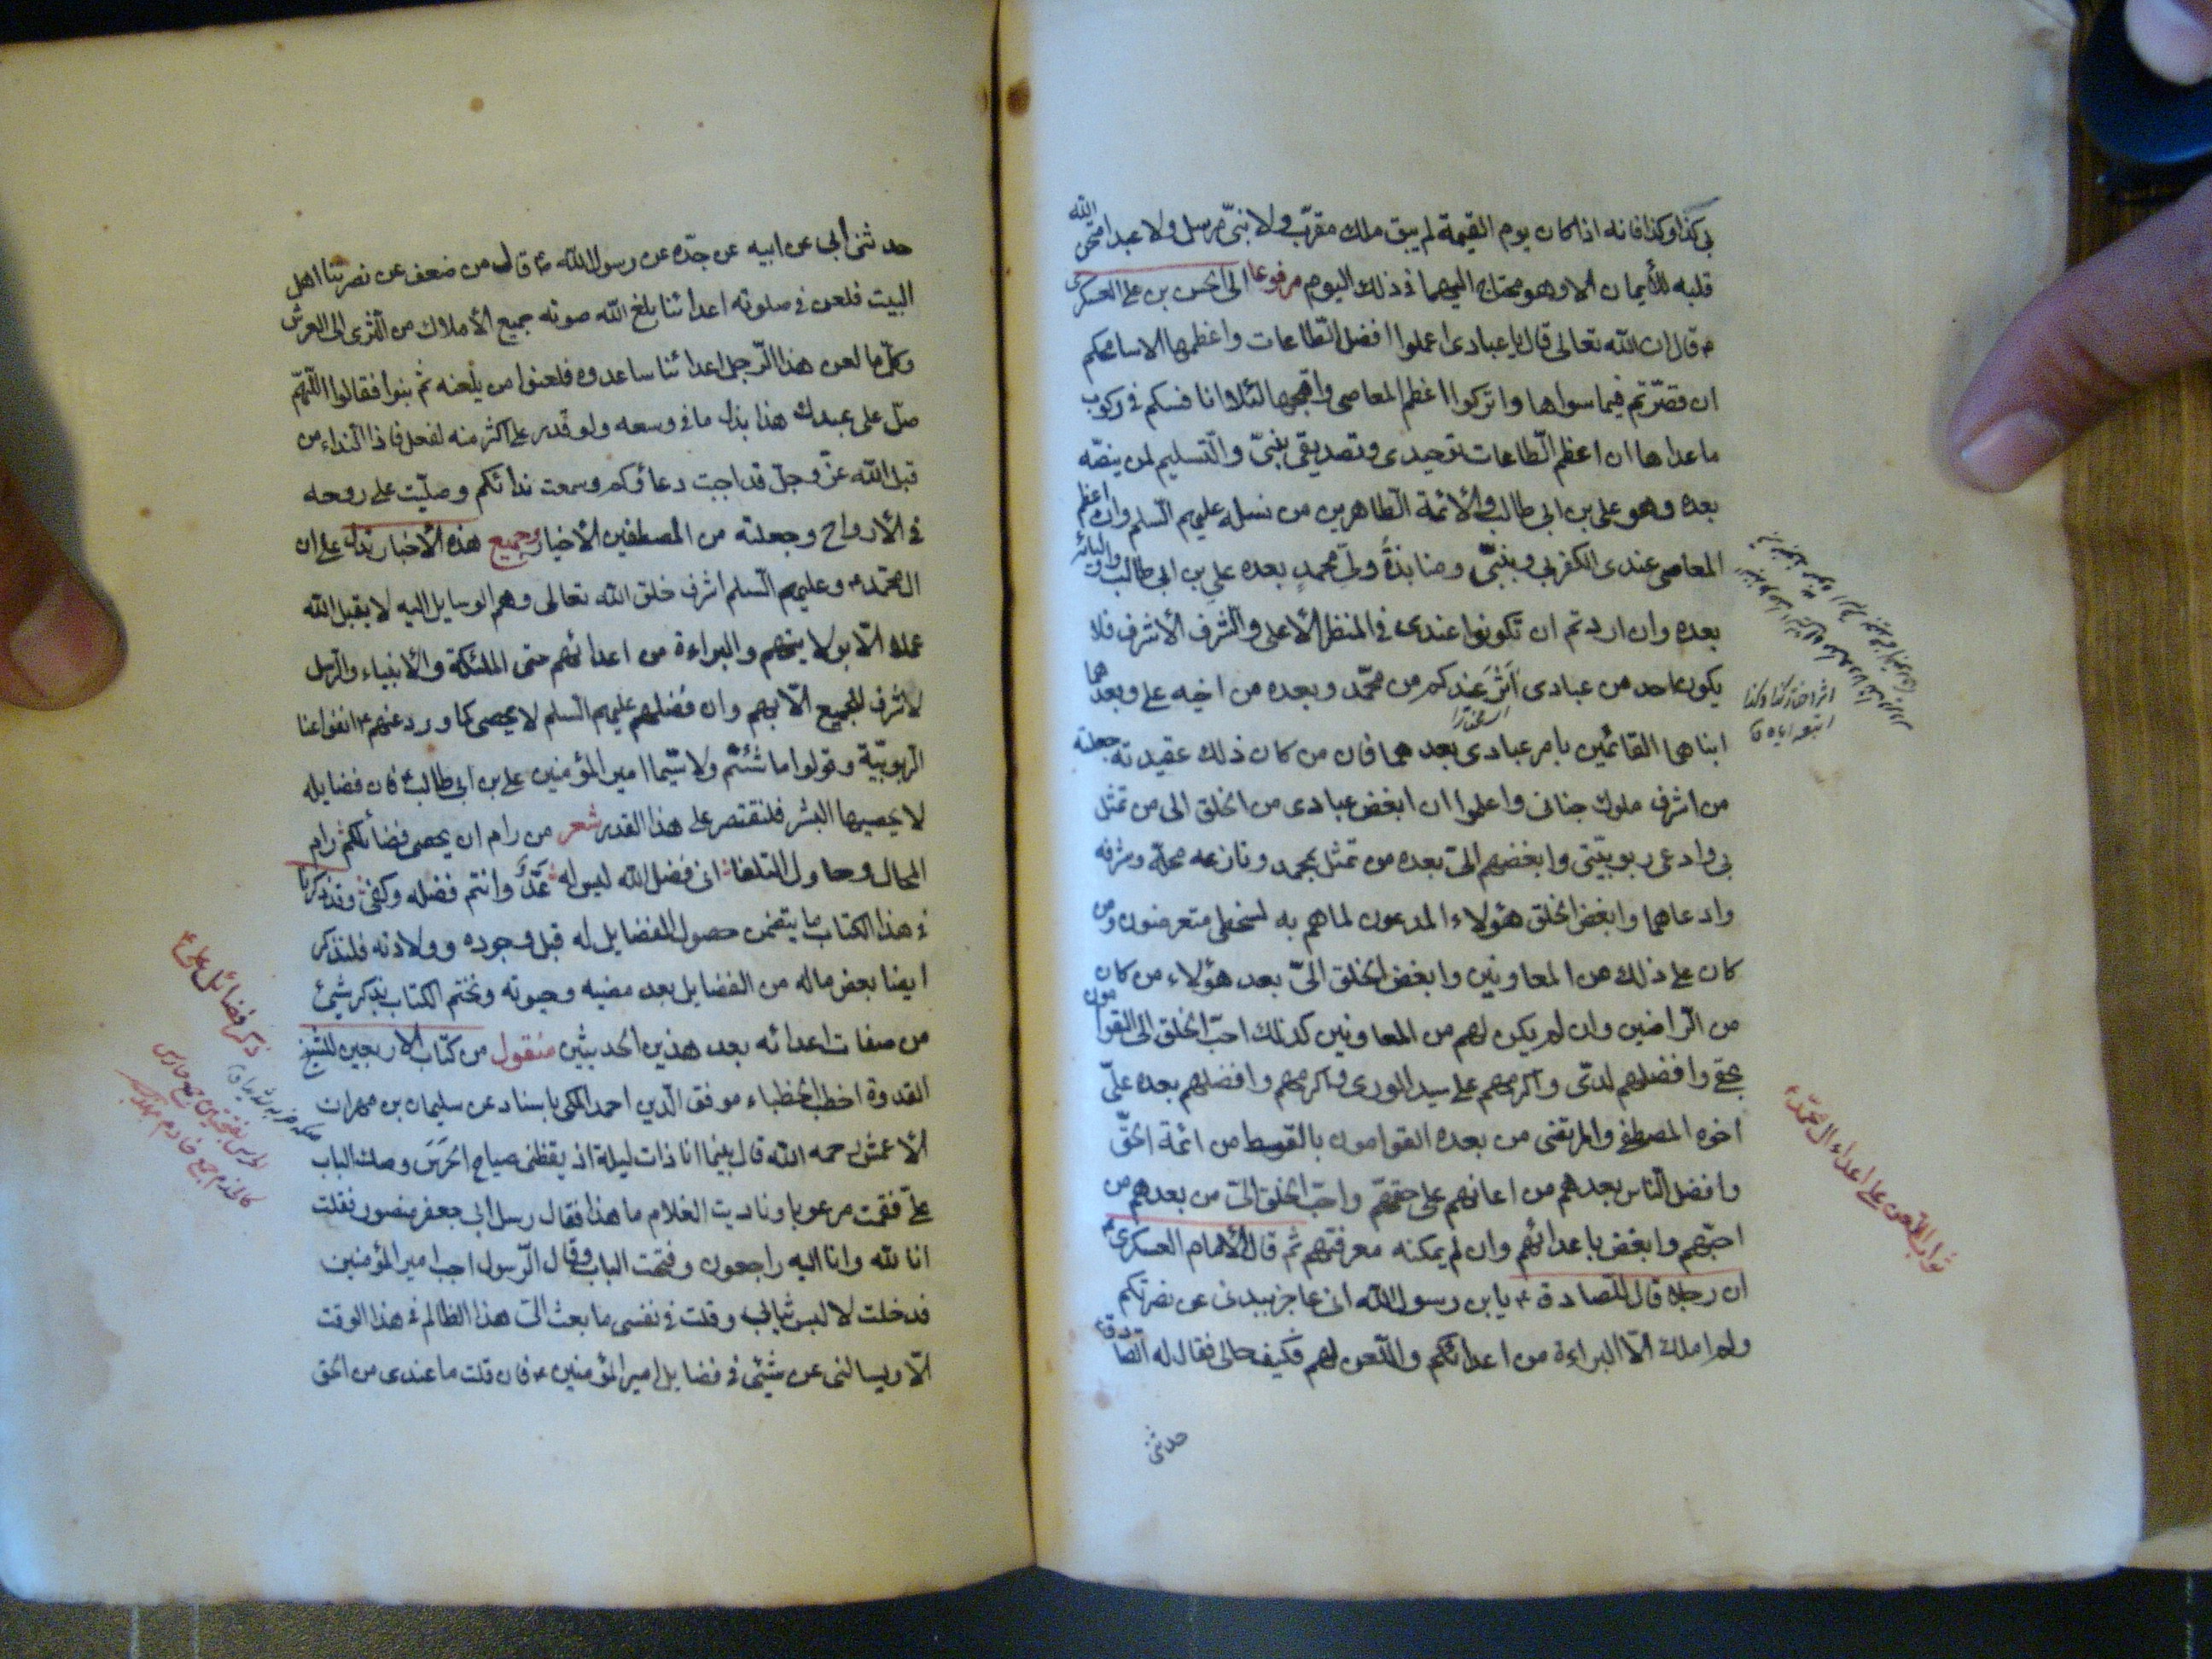 بي كذا وكذا فانه اذا كان يوم القيمة لم يبق ملك مقرّب ولا نبيّ مرسل ولا عبد امتحن الله
قلبه للأيمان الا وهو محتاج اليهما في ذلك اليوم مرفوعا الى الحسن بن علي العسكري
ع قال ان الله تعالى قال يا عبادي اعملوا افضل الطّاعات واعظمها لاسامحكم
ان قصّرتم فيما سواها واتركوا اعظم المعاصي واقبحها لئلا اناقشكم في ركوب
ما عداها ان اعظم الطّاعات توحيدي وتصديقي بنبيّ والتّسليم لمن ينصّه
بعده وهو علي بن ابي طالب والأئمة الطّاهرين من نسله عليهم السّلم وان اعظم
المعاصي عندي الكفر بي وبنبيّ ومنابذةُ وليّ محمدٍ بعده علي بن ابي طالب واوليائه
بعده وان اردتم ان تكونوا عندي في المنظر الأعلى والشّرف الأشرف فلا
يكون احد من عبادي آثَرَ عندكم من محمّد وبعده من اخيه علي وبعدهما
ابناهما القائمين بامر عبادي بعدهما فان من كان ذلك عقيدته جعلته
من اشرف ملوك جناني واعلموا ان ابغض عبادي من الخلق الى من تمثل
بي وادعى ربوبيّتي وابغضهم اليّ بعده من تمثل بمحمد ونازعه محلّه وشرفه
وادعاهما وابغض الخلق هؤلاء المدعون لما هم به لسخطي متعرضون ومن
كان على ذلك من المعاونين وابغض الخلق اليّ بعد هؤلاء من كان
من الرّاضين وان لم يكن لهم من المعاونين كذلك احبّ الخلق الى القوامون
بحقّي وافضلهم لديّ واكرمهم علي سيد الورى واكرمهم وافضلهم بعده عليّ
اخوه المصطفى والمرتضى من بعده القوامون بالقسط من ائمة الحقّ
وافضل النّاس بعدهم من اعانهم على حقهم واحبّ الخلق اليّ من بعدهم من
احبّهم وابغض باعدائهم وان لم يمكنه معرفتهم ثم قال الأمام العسكري ع
ان رجلا قال للصّادق ع يا بن رسول الله اني عاجز ببدني عن نصرتكم
ولم املك الّا البراءة من اعدائكم واللّعن لهم فكيف حالي فقال له الصّادق ع
حدثني
ثواب اللّعن على اعداء ال محمّد ع
حدثني أبي عن ابيه عن جدّه عن رسول الله ص قال من ضعف عن نصرتنا اهل
البيت فلعن في صلوته اعدائنا بلغ الله صوته جميع الأملاك من الثّرى الى العرش
وكلّما لعن هذا الرّجل اعدائنا ساعدوه فلعنوا من يلعنه ثم بنوا فقالوا اللّهمّ
صلّ على عبدك هذا بذل ما في وسعه ولو قدر على اكثر منه لفعل فاذا النداء من
قبل الله عزّ وجلّ قد اجبت دعاؤكم وسمعت ندائكم وصلّيت على روحه
في الأرواح وجعلته من المصطفين الأخيار وجميع هذه الأخبار تدل على ان
ال محمّد ص وعليهم السّلم اشرف خلق الله تعالى وهم الوسايل اليه لا يقبل الله
عملا الّا بولايتهم والبراءة من اعدائهم حتى الملئكة والأنبياء والرّسل
لا شرف للجميع الّا بهم وان فضلهم عليهم السّلم لا يحصى كما ورد عنهم ع انفوا عنا
الرّبوبيّة وقولوا ما شئتم ولا سيّما امير المؤمنين علي بن ابي طالب ع فان فضايله
لا يحصيها البشر فلنقتصر على هذا القدر شعر من رام ان يحصى فضائلكم رام
المحال وحاول التلفا اني فضل الله ليس له عَدَّ وانتم فضله وكفى وقد ذكرنا
في هذا الكتاب ما يتضمن حصول الفضايل له قبل وجوده وولادته فلنذكر
ايضا بعض ماله من الفضايل بعد مضيه وحيوته ونختم الكتاب بذكر شيئ
من صفات اعدائه بعد هذين الحديثين منقول من كتاب الاربعين للشّيخ
القدوة اخطب الخطباء موفق الدّين احمد المكي باسناد عن سليمان بن مهران
الأعمش رحمه الله قال بينما انا ذات ليلة اذ يقظني صياح الحَرَس وصك الباب
عليّ فقمت مرعوبا وناديت الغلام ما هذا فقال رسل ابي جعفر منصور فقلت
انا لله وانا اليه راجعون وفتحت الباب وقال الرّسول اجب امير المؤمنين
فدخلت لالبس ثيابي وقلت في نفسي ما بعث اليّ هذا الظالم في هذا الوقت
الّا ويسالني عن شيئي في فضايل امير المؤمنين ع فان قلت ما عندي من الحق
ذكر فضائل علي ع